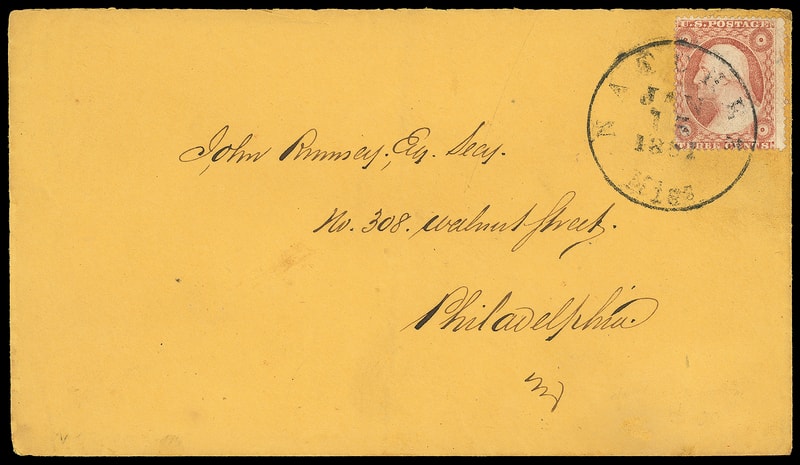 U.S. POSTAGE
THREE CENTS
NATCHEZ
JAN
1861
MISS
John Rumsey, Esq. Secy.
No. 308. Walnut Street.
Philadelphia